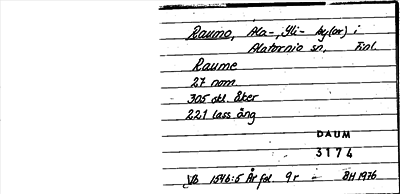 Raumo, Ala-, Yli- by(ar) i
Alatornio sn, Finl.
Raume
27 nom.
305 skl. åker
221 lass äng
DAUM
3174
VB 1546:5 År fol. 9 r - BH 1976